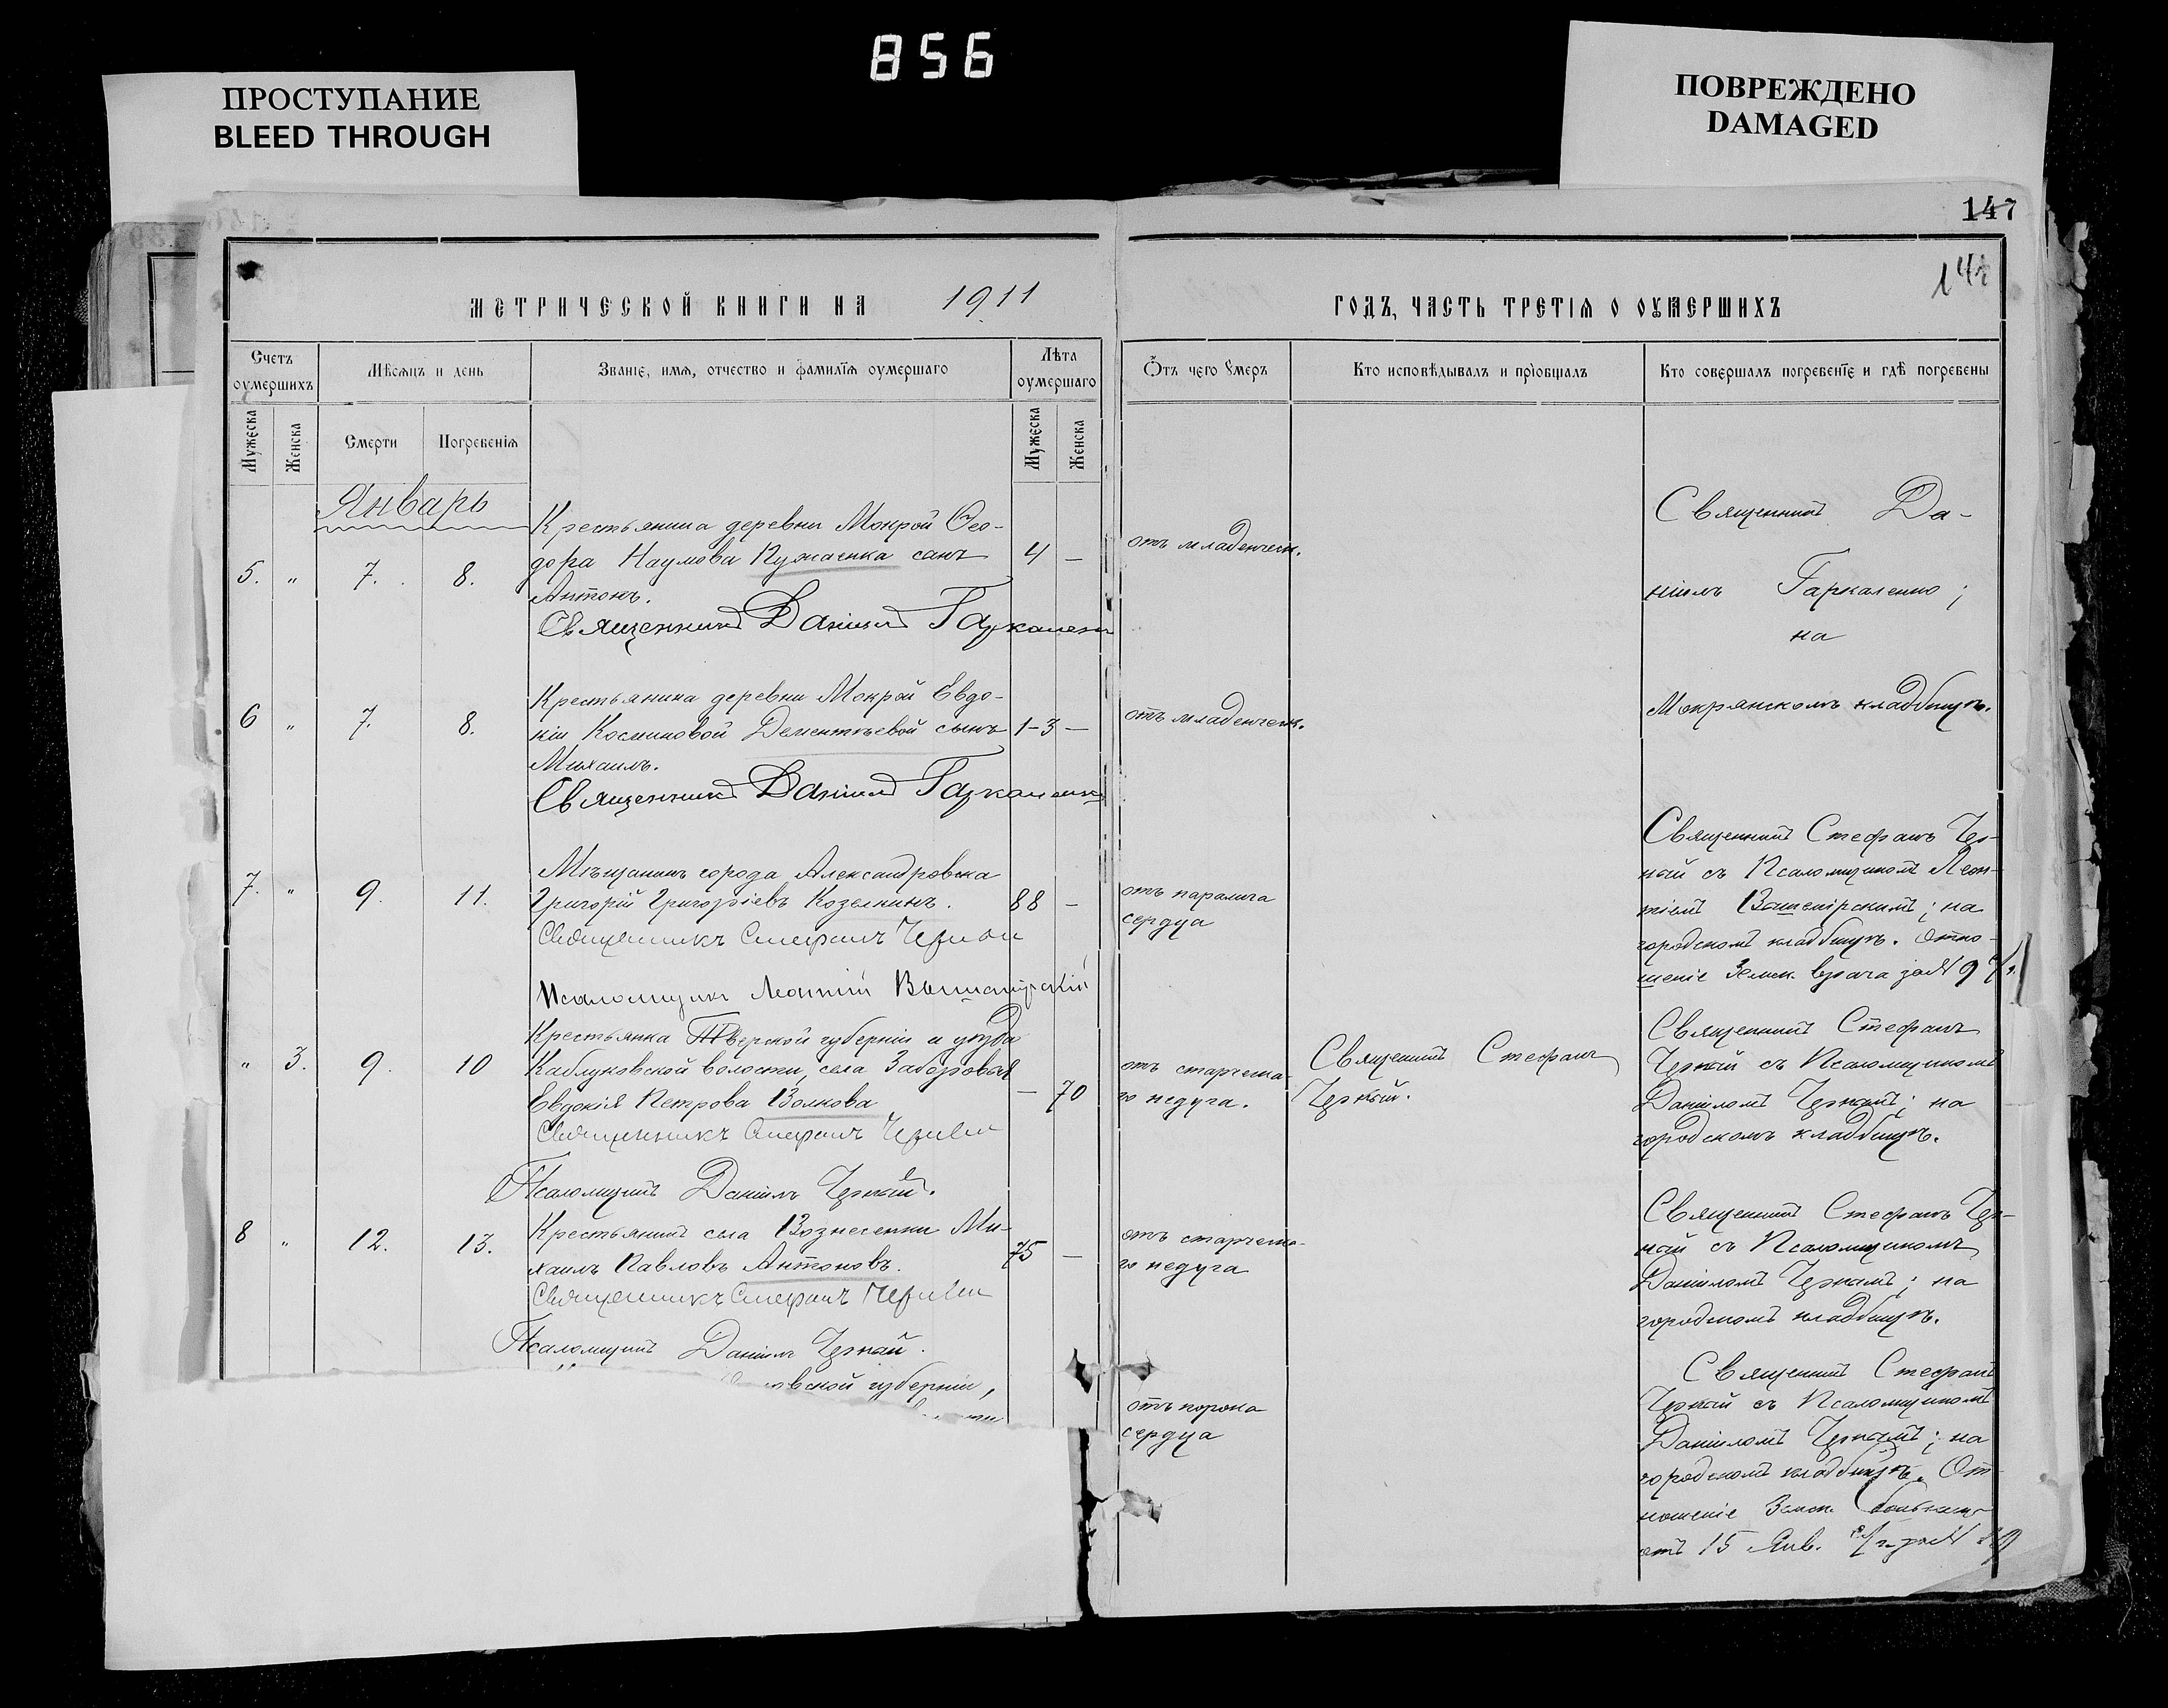 856
ПРОСТУПАНИЕ
BLEED THROUGH
ПОВРЕЖДЕНО
DAMAGED
147
МЕТРИЧЕСКОЙ КНИГИ НА 1911
ГОДЪ, ЧАСТЬ ТРЕТІѦ О ОУМЕРШИХЪ
Счетъ оумершихъ
Мѣсѧцъ и день
Званіе, имѧ, отчество и фамиліѧ оумершаго
Лѣта оумершаго
Ѿтъ чего Умеръ
Кто исповѣдывалъ и пріобщалъ
Кто совершалъ погребеніе и гдѣ погребены
Мужеска
Женска
Смерти
Погребеніѧ
Мужеска
Женска
Январь
5. " 7. 8.
Крестьянина деревни Мокрой Ѳео-
дора Наумова Пужаенка сынъ
Антонъ.
4 —
отъ младенческ.
Священникъ Даніилъ Гаркаленко
Священникъ Да-
ніилъ Гаркаленко;
на
Мокрянскомъ кладбищѣ.
6 " 7. 8.
Крестьянина деревни Мокрой Евдо-
кіи Косминовой Дементьевой сынъ
Михаилъ.
1-3 —
отъ младенческ.
Священникъ Даніилъ Гаркаленко
7. " 9. 11.
Мѣщанинъ города Александровска
Григорій Григоріевъ Козелкинъ.
88 —
отъ паралича
сердца
Священникъ Стефанъ Черный
Псаломщикъ Леонтій
Священникъ Стефанъ Чер-
ный съ Псаломщикомъ Леон-
тіемъ на
городскомъ кладбищѣ. Отно-
шеніе Земск. врача за № 9
" 3. 9. 10
Крестьянка Тверской губерніи и уѣзда
Каблуковской волости, села Заборовья
Евдокія Петрова Волкова
— 70
отъ старческа-
го недуга.
Священникъ Стефанъ
Черный.
Священникъ Стефанъ Черный
Псаломщикъ Даніилъ Черный.
Священникъ Стефанъ
Черный съ Псаломщикомъ
Даніиломъ Чернымъ; на
городскомъ кладбищѣ.
8 " 12. 13.
Крестьянинъ села Вознесенки Ми-
хаилъ Павловъ Антоновъ.
75 —
отъ старческа-
го недуга
Священникъ Стефанъ Черный
Псаломщикъ Даніилъ Черный.
Священникъ Стефанъ Чер-
ный съ Псаломщикомъ
Даніиломъ Чернымъ; на
городскомъ кладбищѣ.
губерніи,
отъ порока
сердца
Священникъ Стефанъ
Черный съ Псаломщикомъ
Даніиломъ Чернымъ; на
городскомъ кладбищѣ. От-
ношеніе Земск. больницы
отъ 15 Янв. с/г за №